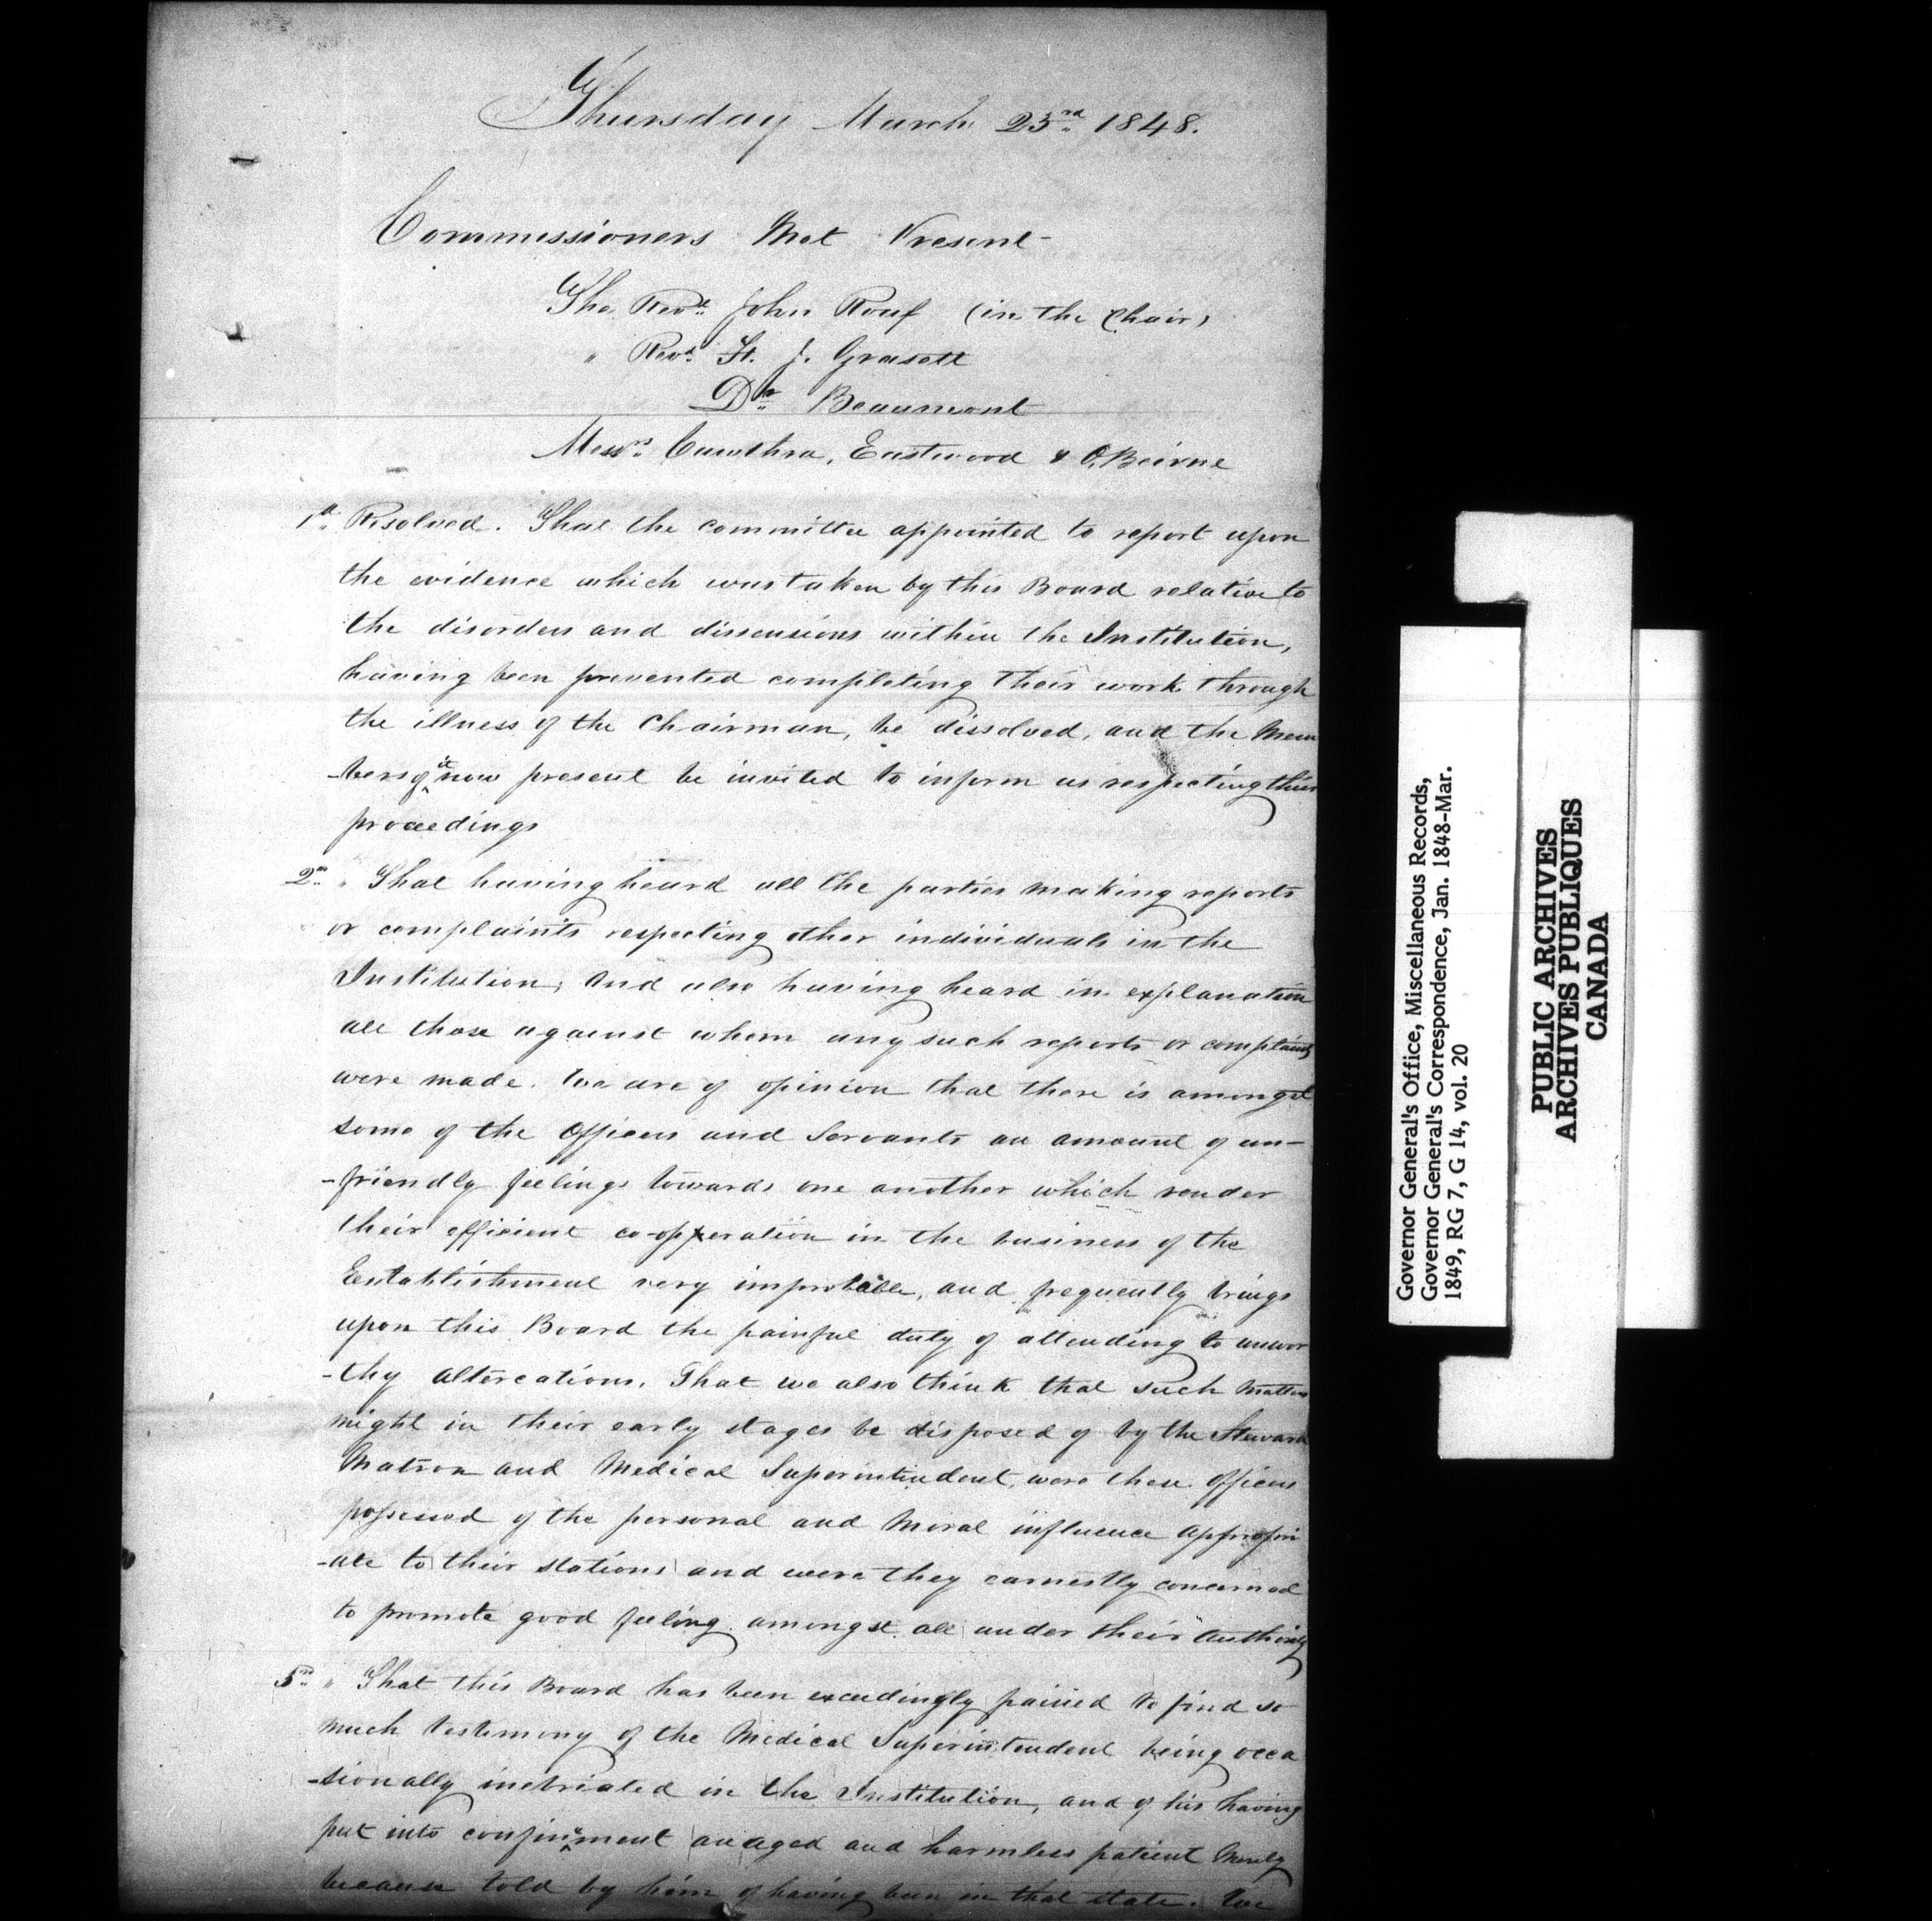 Thursday March 23rd 1848.
Commissioners Met Present -
The Revd. John Roaf (in the Chair)
" Revd. H. J. Grasett
Dr. Beaumont
Messrs. Cawthra, Eastwood & O,Beirne
1st. Resolved. That the committee appointed to report upon
the evidence which was taken by this Board relative to
the disorders and dissensions within the Institution,
having been prevented completing their work through
the illness of the Chairman, be dissolved, and the Mem
-bers of it now present be invited to inform us respecting their
proceedings
2nd. " That having heard all the parties making reports
or complaints respecting other individuals in the
Institution, and also having heard in explanation
all those against whom any such reports or complaints
were made. We are of opinion that there is amongst
some of the Officers and Servants an amount of un-
-friendly feelings towards one another which render
their efficient co-opperation in the business of the
Establishment very improbable, and frequently brings
upon this Board the painful duty of attending to unwor
-thy altercations. That we also think that such Matters
might in their early stages be disposed of by the Steward
Matron and Medical Superintendent, were these Officers
possessed of the personal and Moral influence appropri
-ate to their stations and were they earnestly concerned
to promote good feeling amongst all under their authority
3rd. " That this Board has been exceedingly pained to find so
much testimony of the Medical Superintendent being occa
-sionally inebriated in the Institution, and of his having
put into confinement an aged and harmless patient Merely
because told by him of having been in that state. We
Governor General's Office, Miscellaneous Records,
Governor General's Correspondence, Jan. 1848-Mar.
1849, RG 7, G 14, vol. 20
PUBLIC ARCHIVES
ARCHIVES PUBLIQUES
CANADA